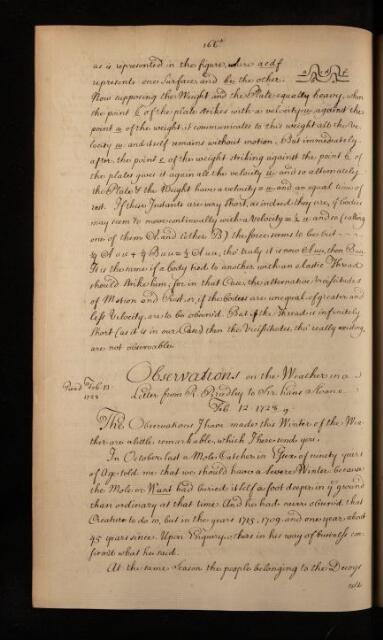 166
as is represented in the figure, where acdf
represents one Surface, and be the other.
Now supposing the Weight and the Plate equally heavy, when
the point b of the plate strikes with a velocity u, against the
point a of the weight, it communicates to this weight all the Ve-
locity u, and itself remains without motion. But immediately
after, the point c of the weight striking against the point b of
the plate gives it again all the velocity u, and so alternately
the Plate & the Weight have a velocity = u, and an equal time of
rest. If these Instants are very short, as indeed they are, if bodies
may seem to move continually with a Velocity = ½ u and so (calling
one of them A and tother B) the force seems to be but
¼ A uu + ¼ B uu = ½ A uu, tho' truly it is now A uu, then B uu
It is the same if a body tied to another with an elastic Thread
should strike him; for in that Case, the alternative Vicissitudes
of Motion and Rest, or, if the bodies are unequal, of greater and
less Velocity, are to be observ'd. But if the thread is infinitely
short (as it is in our Case) then the Vicissitudes, tho' really existing,
are not observable.
Observations on the Weather in a
Read Feb. 13
1728
Letter from R. Bradley to Sr. Hans Sloane
Feb. 12 1728
The Observations I have made this Winter of the Wea-
ther are a little remarkable, which I here send you.
In October last a Mole-Catcher in Essex of ninety years
of Age told me that we should have a severe Winter because
the Mole or Want had buried itself a foot deeper in ye ground
than ordinary at that time. And he had never observ'd that
Creature to do so, but in the years 1715, 1709, and one year about
45 years since. Upon Enquiry, others in his way of business con-
firm'd what he said.
At the same Season the people belonging to the Decoys